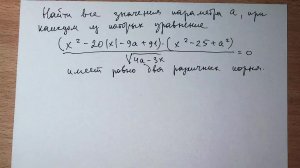 Найти все значения параметра a, при
каждом из которых уравнение
(x² - 20|x| - 9a + 91) · (x² - 25 + a²)
/ √(4a - 3x) = 0
имеет ровно два различных корня.